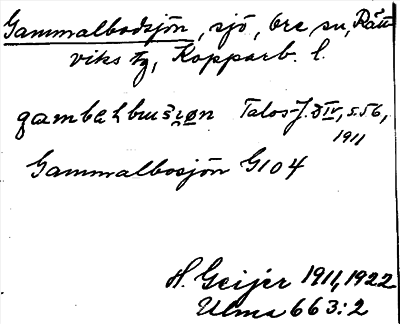 Gammalbodsjön, sjö, Ore sn, Rätt-
viks tg, Kopparb. l.
Talos-J. DIV, s. 56,
1911
Gammalbosjön G104
H. Geijer 1911, 1922
Ulma 663:2